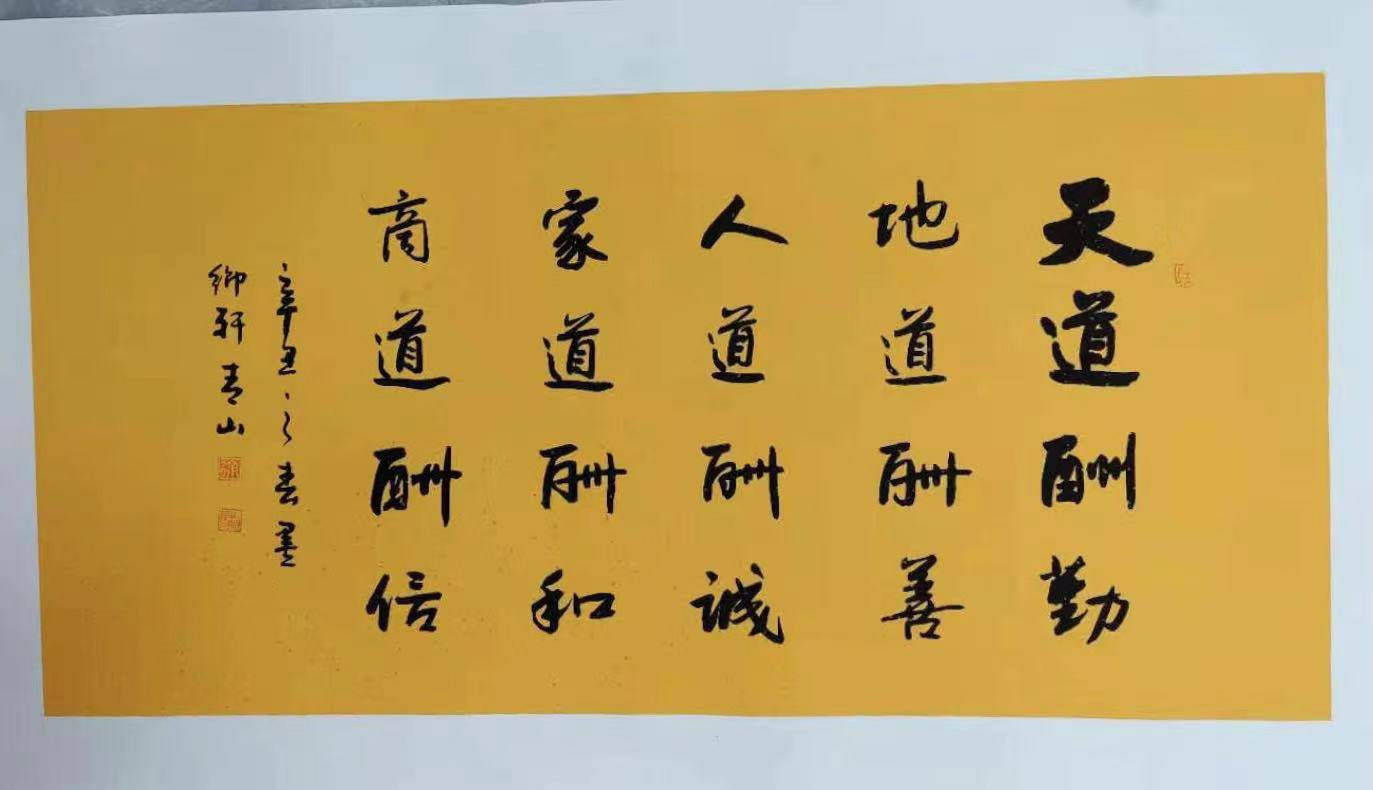 天道酬勤
地道酬善
人道酬誠
家道酬和
商道酬信
辛丑之春書
御軒青山